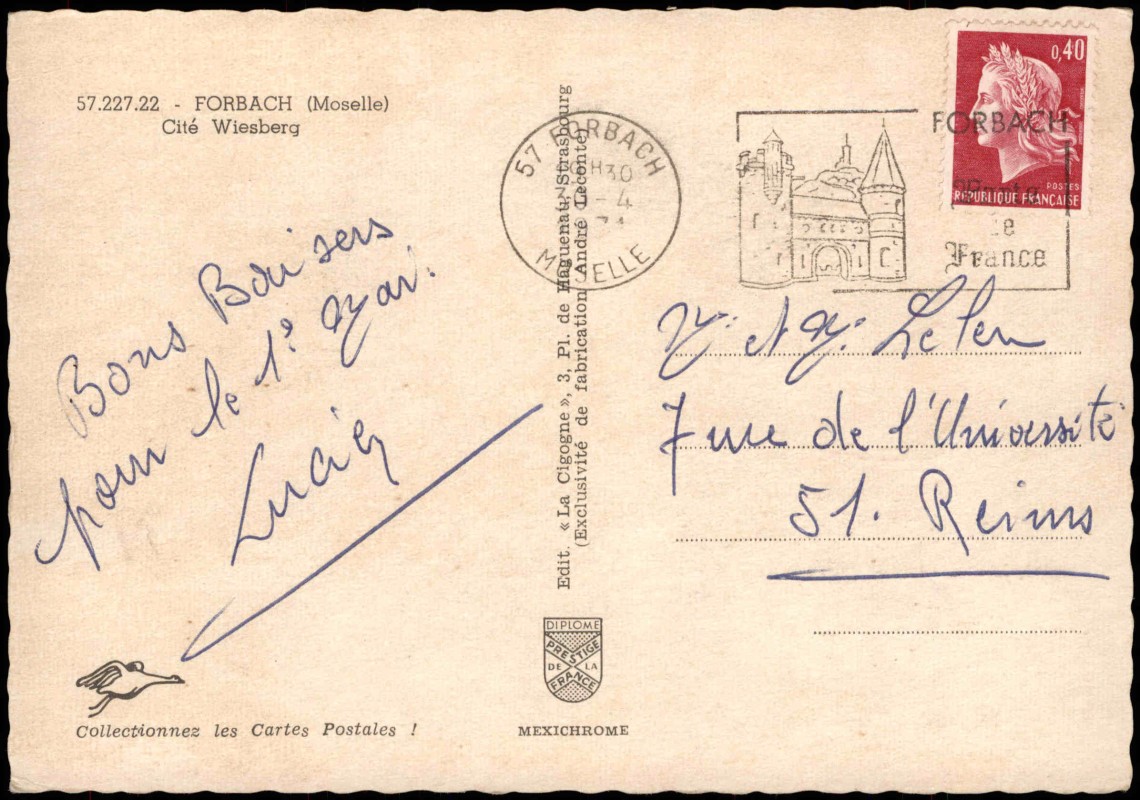 57.227.22 - FORBACH (Moselle)
Cité Wiesberg
Bons Baisers
pour le 1e Mai.
Lucien
Collectionnez les Cartes Postales !
Edit. « La Cigogne », 3, Pl. de Haguenau, Strasbourg
(Exclusivité de fabrication André Leconte)
DIPLOME
PRESTIGE
DE LA
FRANCE
MEXICHROME
57 FORBACH
H30
-4
MOSELLE
FORBACH
Porte
de
France
0,40
POSTES
REPUBLIQUE FRANÇAISE
M. et M.
7 rue de l'Université
51. Reims